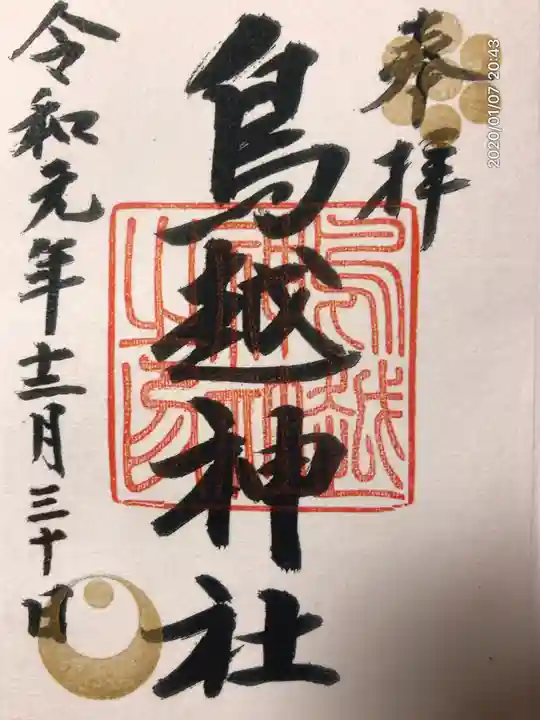 奉拝
鳥越神社
令和元年十二月三十日
2020/01/07 20:43